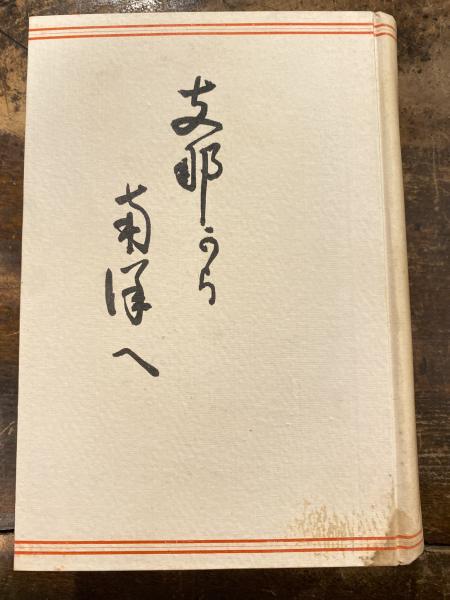 支那から
南洋へ